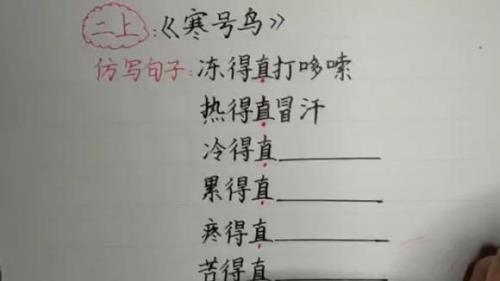 二上:《寒号鸟》
仿写句子:冻得直打哆嗦
热得直冒汗
冷得直______
累得直______
疼得直______
苦得直______